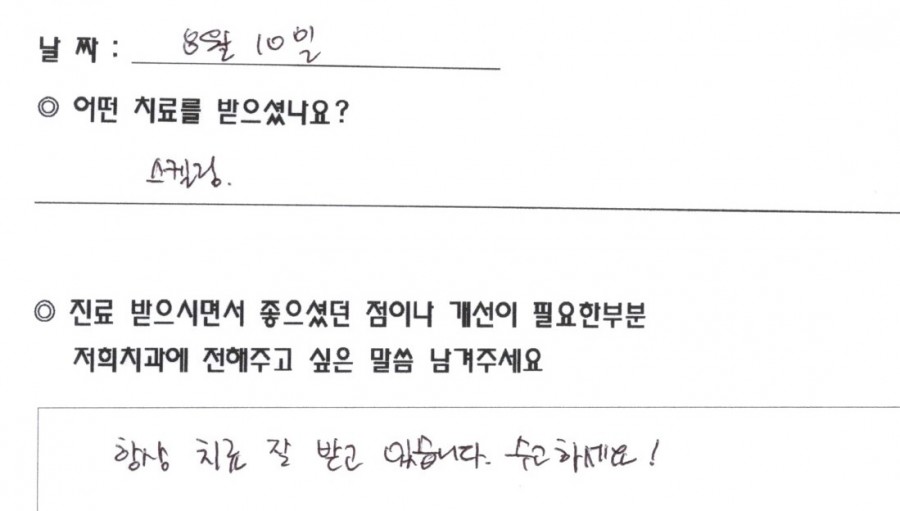 날 짜 : 8월 10일
◎ 어떤 치료를 받으셨나요?
스켈링.
◎ 진료 받으시면서 좋으셨던 점이나 개선이 필요한부분
저희치과에 전해주고 싶은 말씀 남겨주세요
항상 치료 잘 받고 있습니다. 수고하세요!